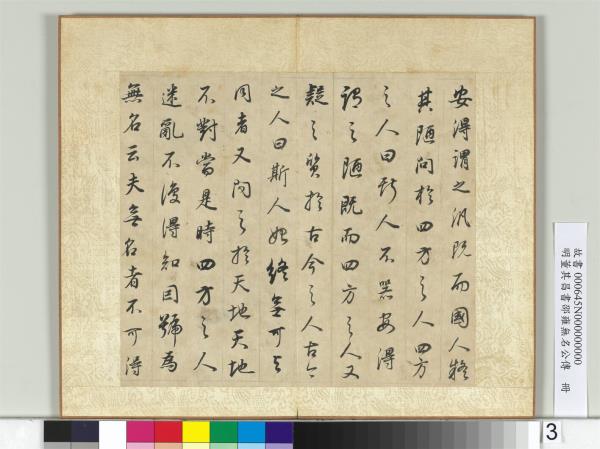 安得謂之汎既而國人疑
其陋問於四方之人四方
之人曰斯人不器安得
謂之陋既而四方之人又
疑之質於古今之人古今
之人曰斯人始終無可與
同者又問之於天地天地
不對當是時四方之人
迷亂不復得知因號為
無名公夫無名者不可得
故書 000645N000000000
明董其昌書邵雍無名公傳 冊
3